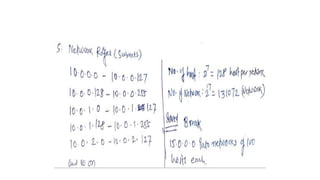 5. Network Range (Subnets)
10.0.0.0 - 10.0.0.127
10.0.0.128 - 10.0.0.255
10.0.1.0 - 10.0.1.127
10.0.1.128 - 10.0.1.255
10.0.2.0 - 10.0.2.127
and so on
No. of host = 2⁷ = 128 host per network
No. of Network = 2¹⁷ = 131072 (Network)
Break
15.0.0.0 into networks of 100
hosts each